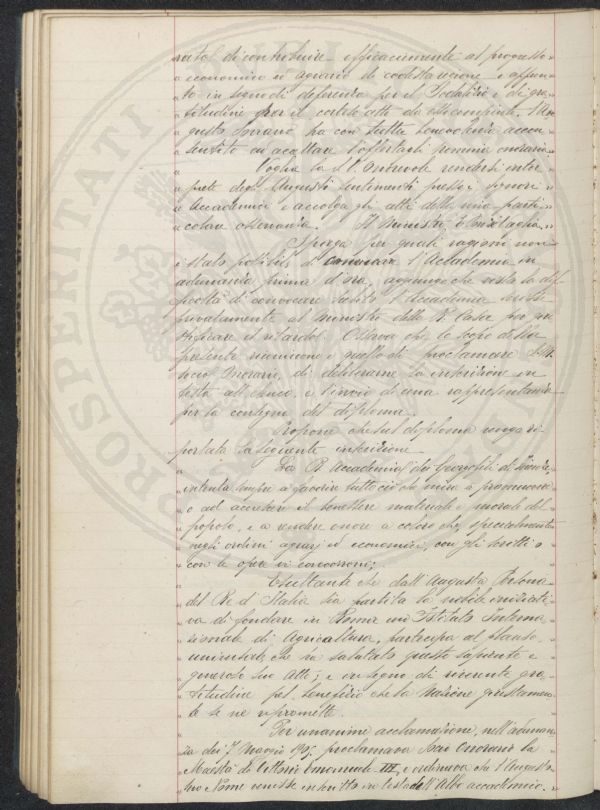 di contribuire efficacemente al progresso
economico ed agrario di codesta regione e assun-
to in segno di deferenza per il Sodalizio e di gra-
titudine per il cortese atto da esso compiuto, l'Au-
gusto Sovrano ha con tutta benevolenza accon
sentito di accettare l'offertagli nomina onoraria
Voglia la S. V. Onorevole rendersi inter
prete degli Augusti sentimenti presso i signori
Accademici e accolga gli atti della mia parti
colare osservanza. Il Ministro
Spiega per quali ragioni non
è stato possibile di convocare l'Accademia in
adunanza prima d'ora, aggiunge che vista la dif
ficoltà di convocare subito l'Accademia scrisse
privatamente al Ministro della R. Casa per giu
stificare il ritardo. Osserva che lo scopo della
presente riunione è quello di proclamare
socio Onorario, di deliberarne la inscrizione in
testa all'elenco, e l'invio di una rappresentanza
per la consegna del diploma.
Propone che sul diploma venga ri
portata la seguente inscrizione
La R. Accademia dei Georgofili di Firenze
intenta sempre a favorire tutto ciò che miri a promuovere
o ad accrescere il benessere materiale e morale del
popolo, e a rendere onore a coloro che, specialmente
negli ordini agrari ed economici, con gli scritti o
con le opere vi concorrono;
Esultante che dall'Augusta Persona
del Re d'Italia sia partita la nobile iniziati
va di fondare in Roma un Istituto Interna
zionale di Agricoltura, partecipa al plauso
universale, che ha salutato questo sapiente e
generoso suo atto; e in segno di riverente gra
titudine pel beneficio che la Nazione giustamen
te se ne ripromette.
Per unanime acclamazione, nell'adunan
za dei 7 Maggio 1905, proclamava Socio Onorario la
Maestà di Vittorio Emanuele III, e ordinava che l'Augusto
suo Nome venisse inscritto in testa dell'Albo accademico.
PROSPERITATI